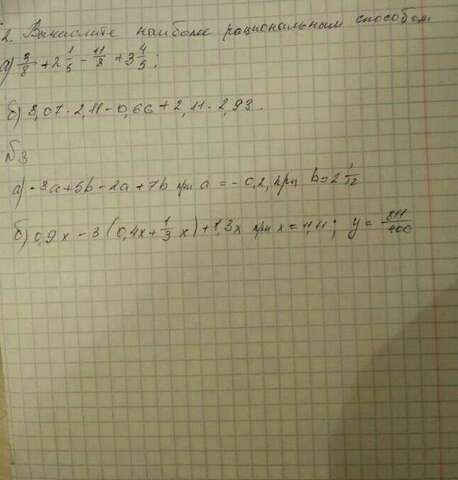 2. Вычислите наиболее рациональным способом
а) 3/8 + 2 1/5 - 11/8 + 3 4/5;
б) 8,07 · 2,11 - 0,66 + 2,11 · 2,93.
№3
а) -8a + 5b - 2a + 7b при a = -0,2, при b = 2 1/12
б) 0,9x - 3 (0,4x + 1/3 x) + 1,3x при x = 4,11; y = /100